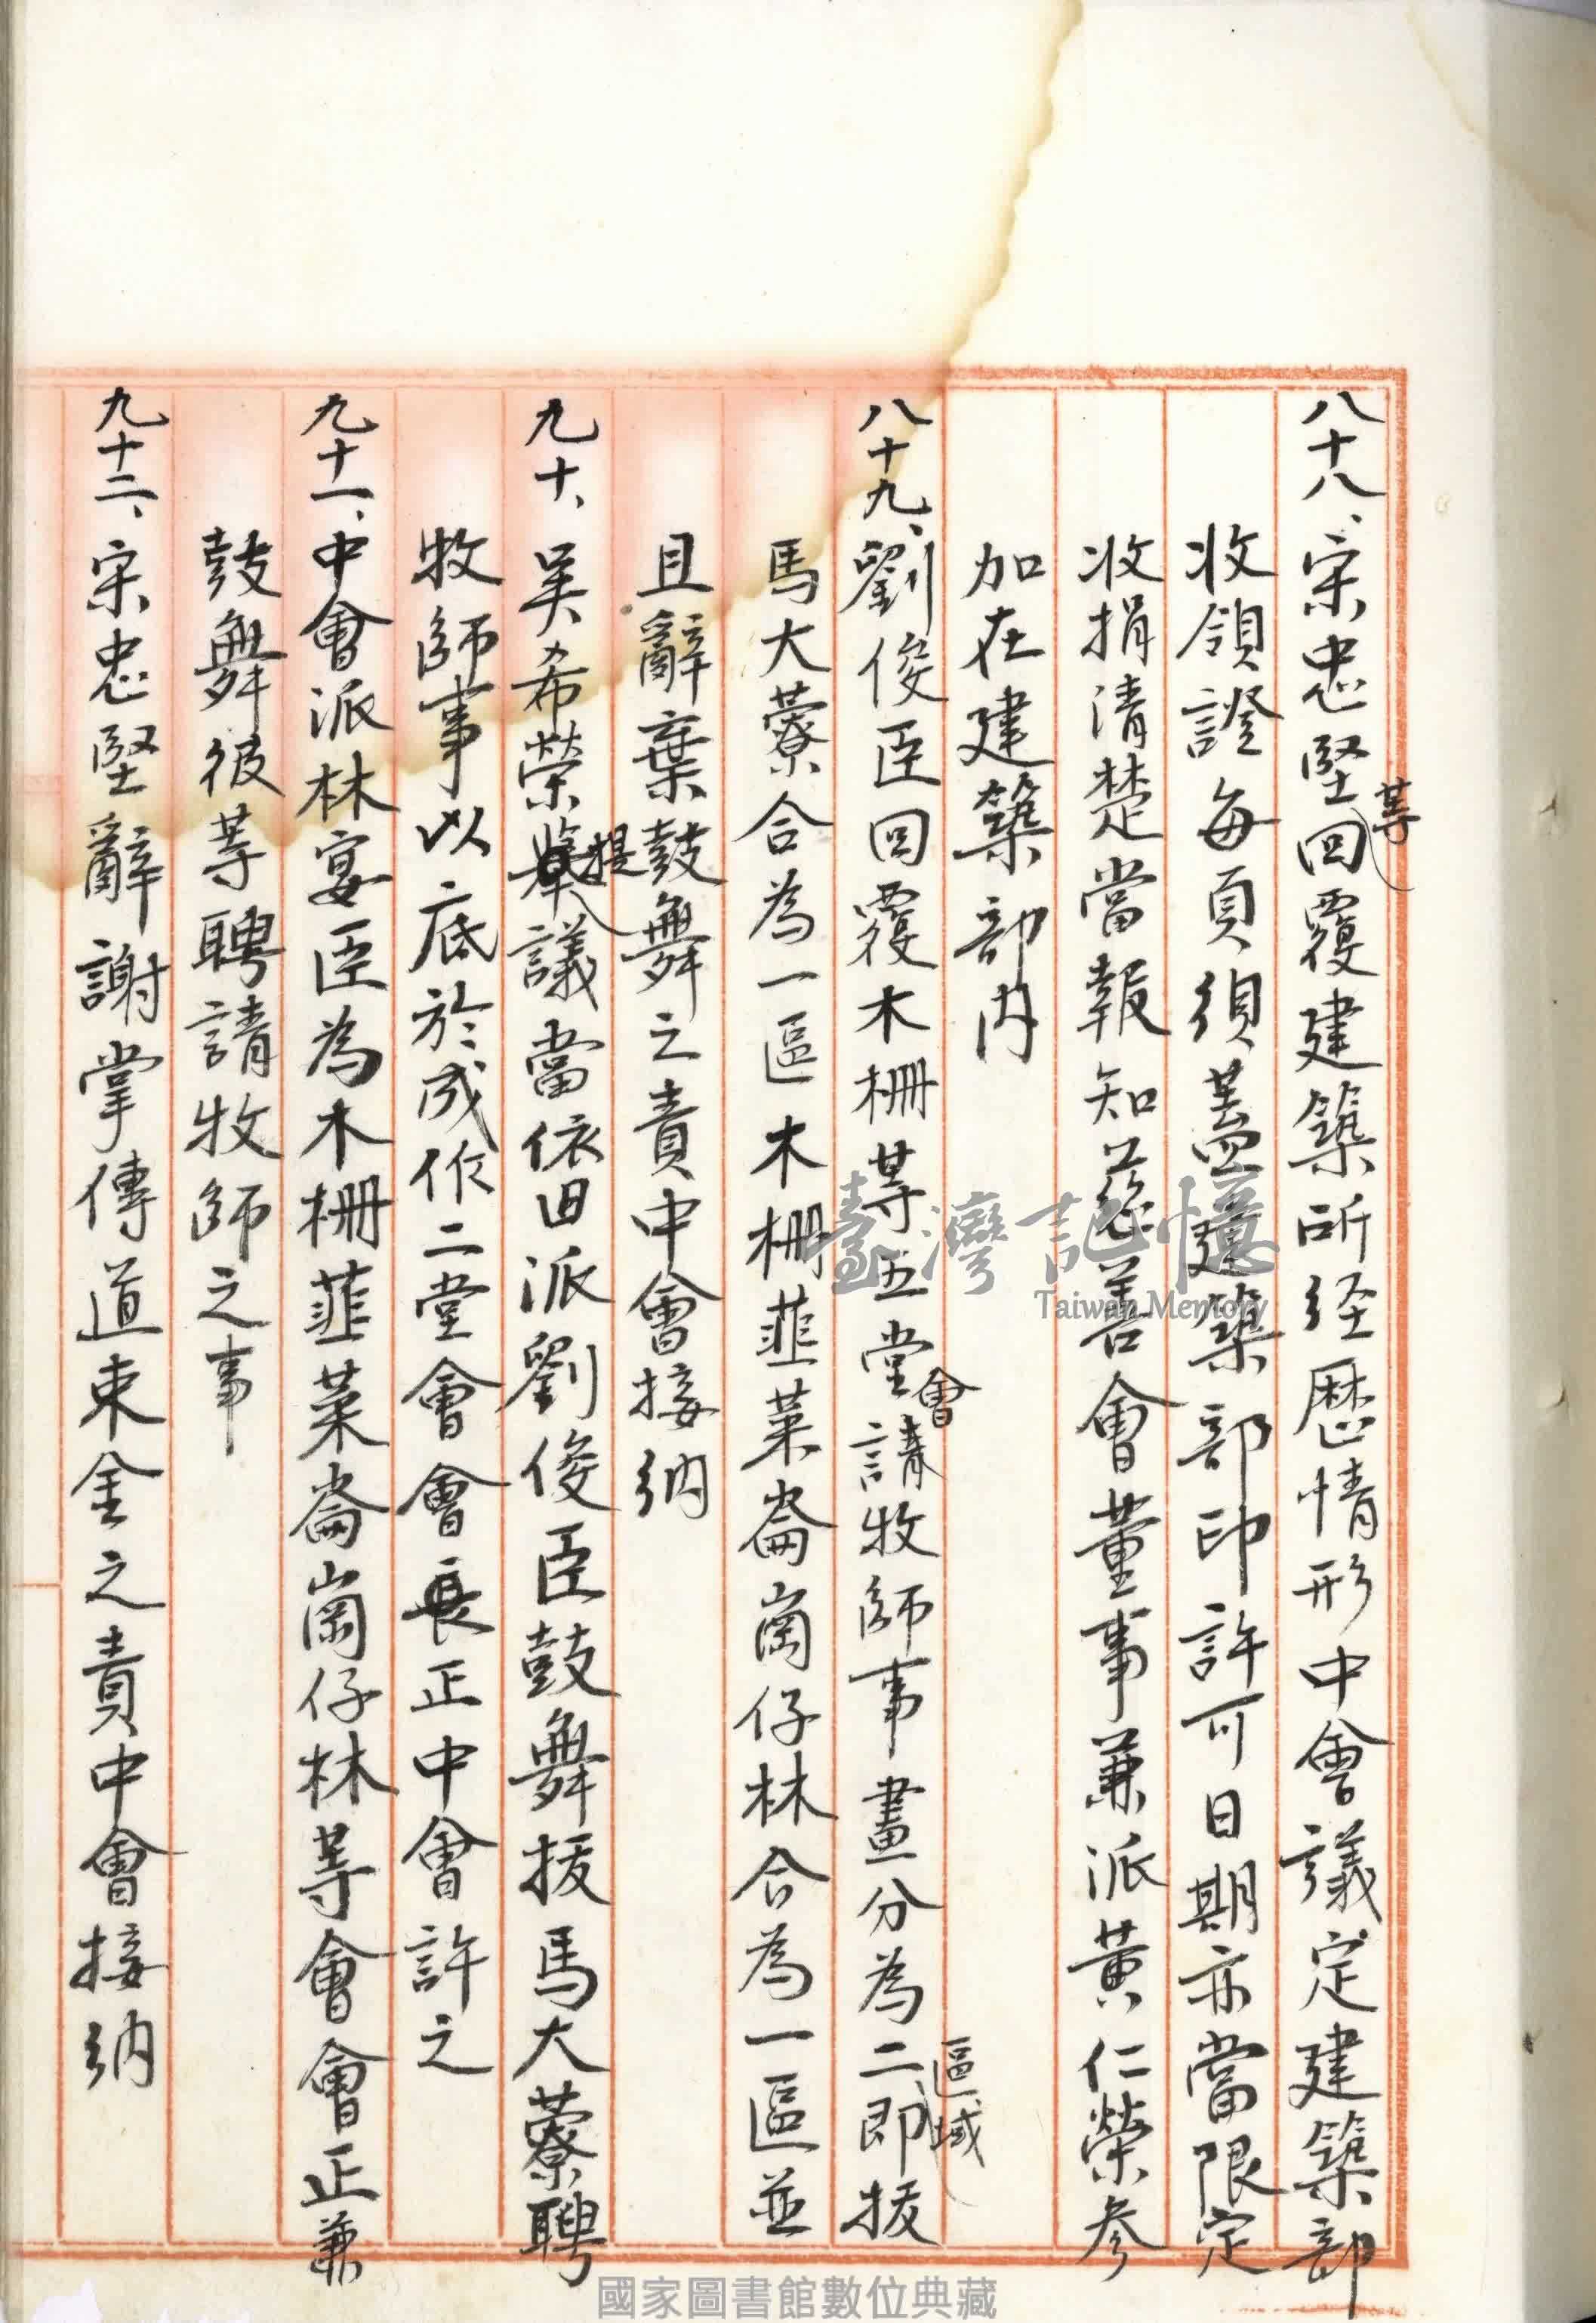 八十八、宋忠堅等回覆建築所経歷情形中會議定建築部
收領證每頁須蓋建築部印許可日期亦當限定
收捐清楚當報知慈善會董事兼派黃仁榮參
加在建築部内
八十九、劉俊臣回覆木柵等五堂會請牧師事畫分為二區域即拔
馬大藔合為一區木柵韮菜崙崗仔林合為一區並
且辭棄鼓舞之責中會接納
九十、吴希榮提議當依旧派劉俊臣鼓舞拔馬大藔聘
牧師事以底於成作二堂會會長正中會許之
九十一、中會派林宴臣為木柵韮菜崙崗仔林等會會正兼
鼓舞彼等聘請牧師之事
九十二、宋忠堅辭謝掌傳道束金之責中會接納
臺灣記憶
Taiwan Memory
國家圖書館數位典藏